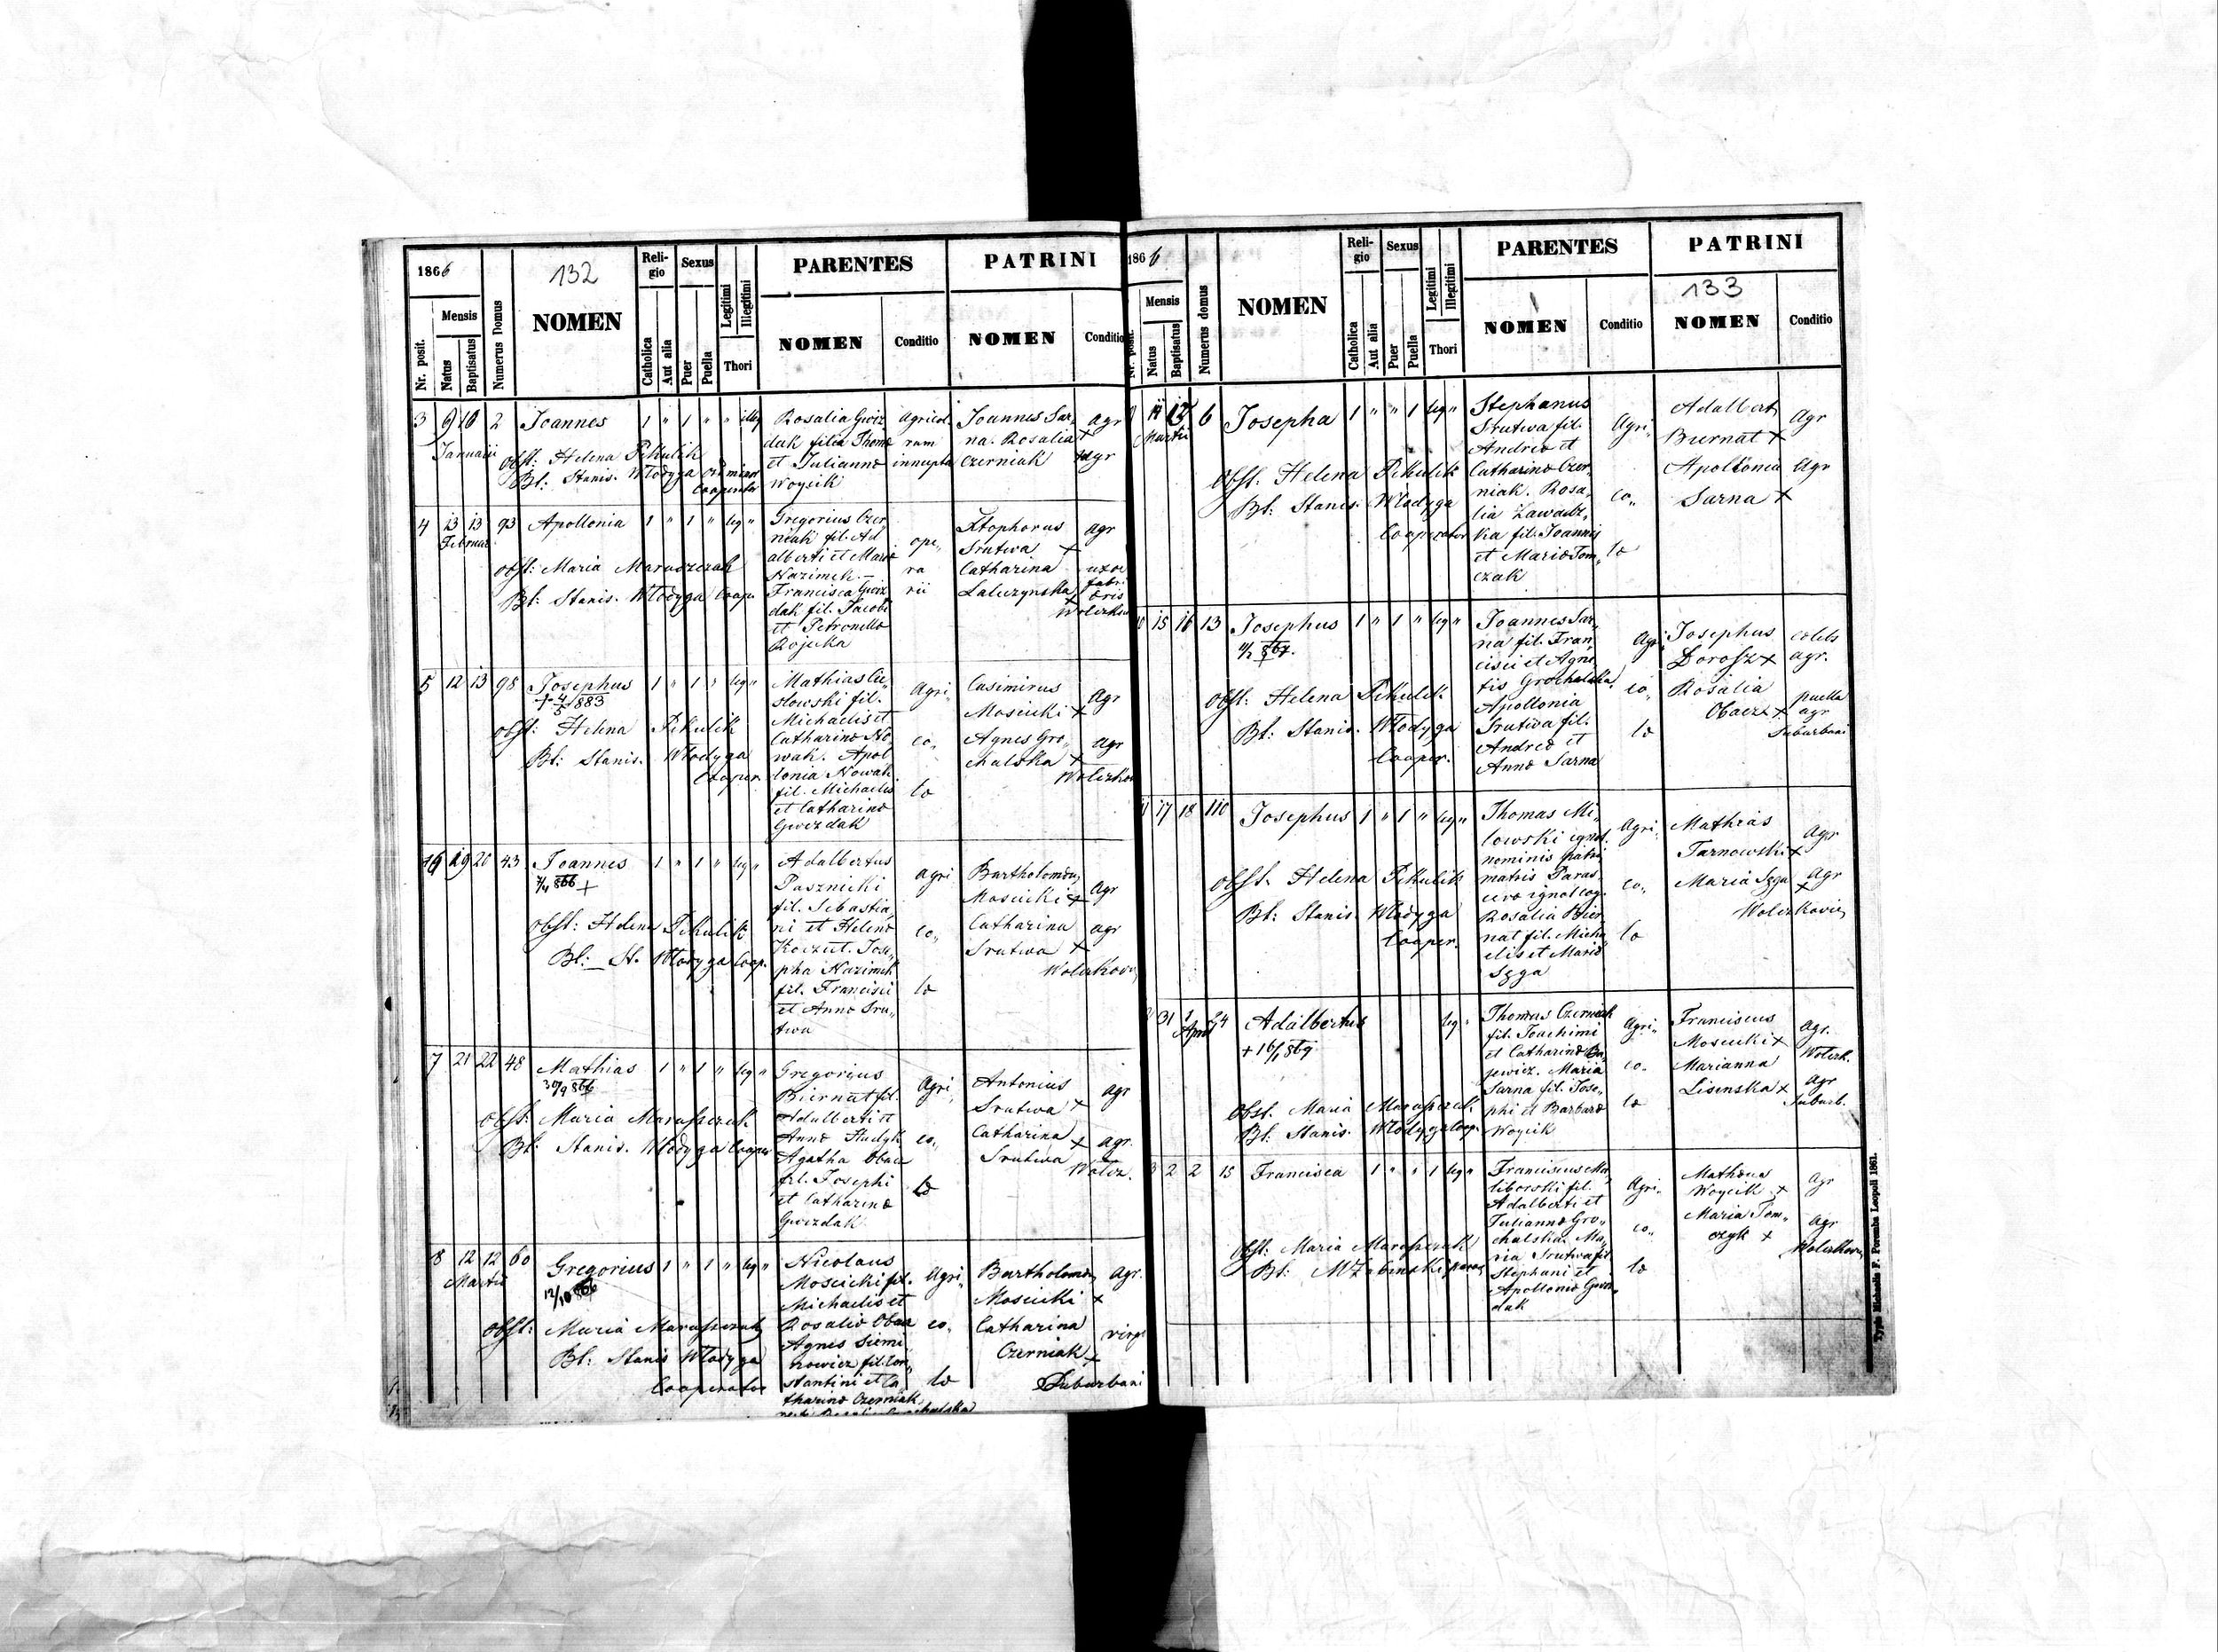 1866
132
Nr. posit.
Mensis
Natus
Baptisatus
Numerus Domus
NOMEN
Reli-
gio
Catholica
Aut alia
Sexus
Puer
Puella
Legitimi
Illegitimi
Thori
PARENTES
NOMEN
Conditio
PATRINI
NOMEN
Conditio
3 9 10 2 Joannes 1 " 1 " " illeg
Januarii
obst: Helena Pikulik
Bl: Stanis. Włodyga
Cooperator
Rosalia Gwiz
dak filia Thoma
et Julianna
Woycik
Agricol.
rum
innupta
Joannes Sar,
na. Rosalia +
Czerniak
Agr
agr
4 13 13 93 Apollonia 1 " 1 " leg "
Februar.
obst: Maria Maruszczak
Bl: Stanis. Włodyga Coop.
Gregorius Czer,
niak fil. Ad
alberti et Maria
Nazimek. –
Francisca Gwiz
dak fil. Jacobi
et Petronella
Rojecka
ope,
ra
rii
Xtophorus
Srutwa +
Catharina
Laluczynska +
agr
uxor
fabri
5 12 13 98 Josephus 1 " 1 " leg "
+ 4/5 1883
obst: Helena Pikulik
Bl: Stanis. Włodyga
Cooper.
Mathias Cie
slowski fil.
Michaelis et
Catharina No
wak. Apol
lonia Nowak
fil. Michaelis
et Catharina
Gwizdak
Agri,
co,
la
Casimirus
Moscicki +
Agnes Gro,
chalska +
Agr
agr
6 19 20 43 Joannes 1 " 1 " leg "
7/4 866 +
obst: Helena Pikulik
Bl: St. Włodyga Coop.
Adalbertus
Pasznicki
fil. Sebastia,
ni et Helena
Koczut. Jose,
pha Nazimek
fil. Francisci
et Anna Sru,
twa
Agri
co,
la
Bartholomæus
Moscicki +
Catharina
Srutwa +
Agr
agr
7 21 22 48 Mathias 1 " 1 " leg "
30/9 866
obst: Maria Maruszczak
Bl: Stanis. Włodyga Cooper
Gregorius
Biernat fil.
Adalberti et
Anna Hudyk
Agatha Obacz
fil. Josephi
et Catharina
Gwizdak
Agri,
co,
la
Antonius
Srutwa +
Catharina +
Srutwa
agr
agr.
Wolcz.
8 12 12 60 Gregorius 1 " 1 " leg "
Martii
12/10 866
obst: Maria Maruszczak
Bl: Stanis Włodyga
Cooperator
Nicolaus
Moscicki fil.
Michaelis et
Rosalia Obacz
Agnes Siemi
nowicz fil. Con,
stantini et Ca
tharina Czerniak
Agri,
co,
la
Bartholomæus
Moscicki +
Catharina
Czerniak +
Suburbani
Agr.
virgo
1866
133
Nr. posit.
Mensis
Natus
Baptisatus
Numerus domus
NOMEN
Reli-
gio
Catholica
Aut alia
Sexus
Puer
Puella
Legitimi
Illegitimi
Thori
PARENTES
NOMEN
Conditio
PATRINI
NOMEN
Conditio
6 Josepha 1 " " 1 leg "
Martii
obst. Helena Pikulik
Bl: Stanis. Włodyga
Cooperator
Stephanus
Srutwa fil.
Andrea et
Catharina Czer,
niak. Rosa,
lia Zawadz,
ka fil. Joannis
et Maria Tom,
czak
Agri,
co,
la
Adalbert
Biernat +
Apollonia
Sarna +
Agr
Agr
15 16 13 Josephus 1 " 1 " leg "
obst: Helena Pikulik
Bl: Stanis. Włodyga
Cooper.
Joannes Sar,
na fil. Fran,
cisci et Agne
tis Grochalska
Apollonia
Srutwa fil.
Andrea et
Anna Sarna
Agri
co,
la
Josephus
Dorosz +
Rosalia
Obacz +
coleb
agr.
puella
agr
Suburbani
17 18 110 Josephus 1 " 1 " leg "
obst. Helena Pikulik
Bl: Stanis. Włodyga
Cooper.
Thomas Mi,
lowski ignot.
nominis patris
matris Paras,
Rosalia Bier,
nat fil. Micha
elis et Maria
Sęga
Agri,
co,
la
Mathias
Tarnowski +
Maria Sęga +
Agr
Agr
31 1 Adalbertus leg "
April
+ 16/1 869
obst. Maria Maruszczak
Bl: Stanis. Włodyga Coop.
Thomas Czerniak
fil. Joachimi
et Catharina Ba,
jewicz. Maria
Sarna fil. Jose,
phi et Barbara
Woycik
Agri,
co,
la
Franciscus
Moscicki +
Marianna
Lisinska +
Agr.
Wolczk.
Agr
Suburb.
2 2 15 Francisca 1 " " 1 leg "
obst: Maria Maruszczak
Franciscus Ma,
liborski fil.
Adalberti et
Julianna Gro,
chalska. Ma,
ria Srutwa fil
Stephani et
Apollonia Gwiz,
dak
Agri,
co,
la
Mathæus
Woycik +
Maria Tom,
czyk +
Agr
Agr
Typis Michaelis F. Poremba Leopoli 1861.